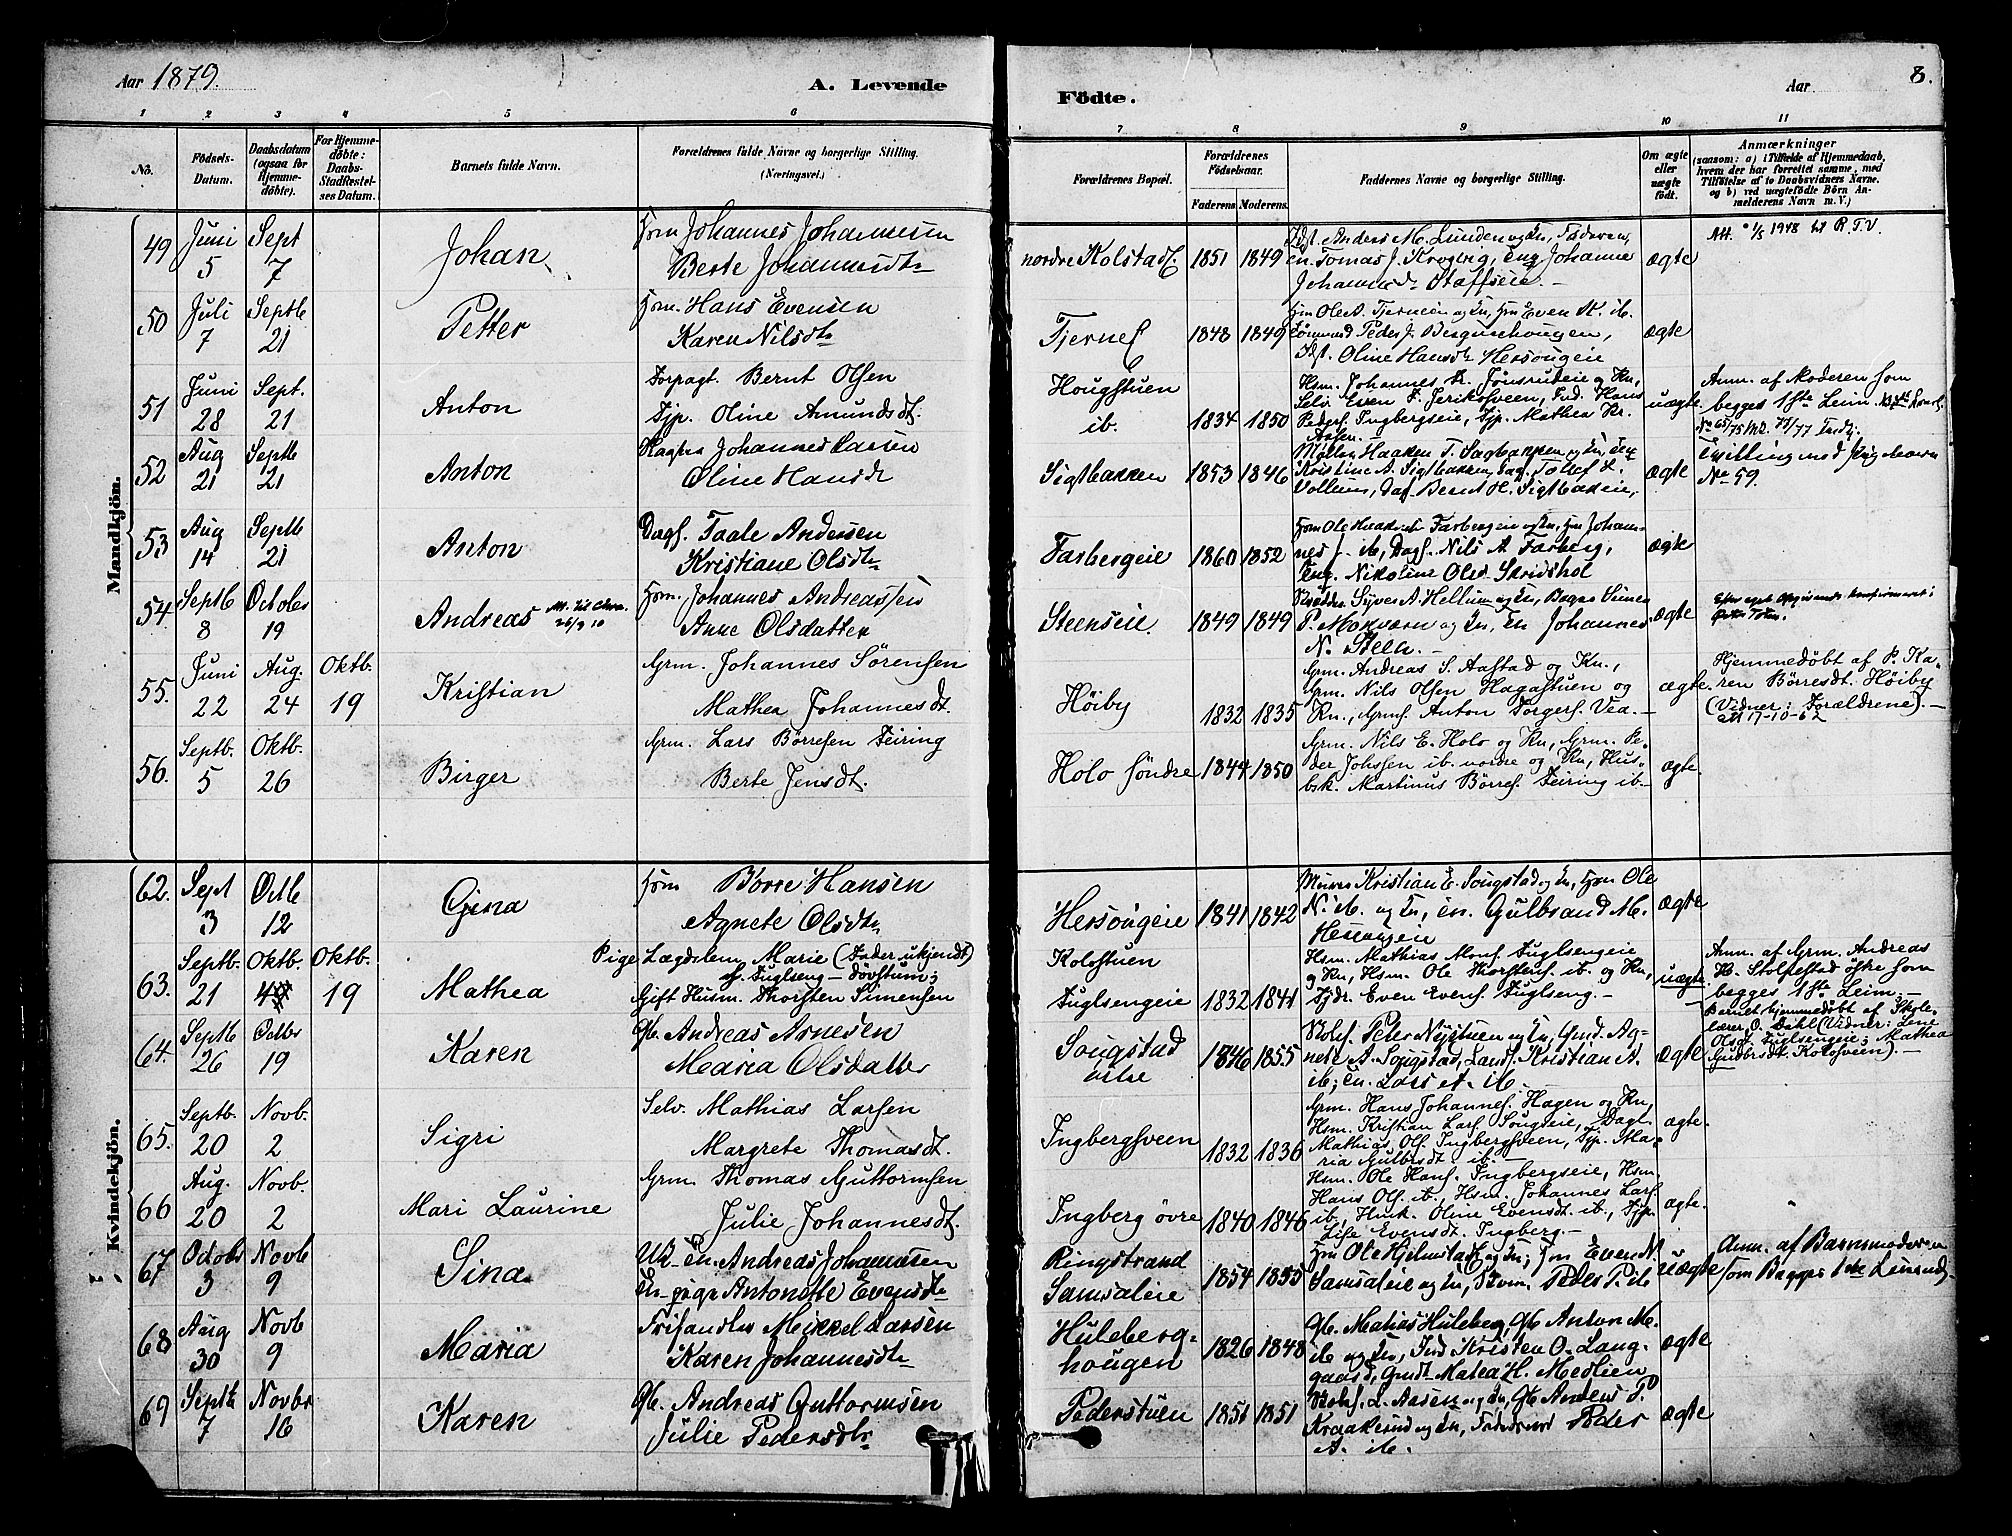 Aar 1879.
A. Levende
Födte.
Aar
8.
1 2 3 4 5 6
7 8 9 10 11
No.
Födsels-
Datum.
Daabsdatum
(ogsaa for
Hjemme-
döbte).
For Hjemme-
döbte:
Daabs-
Stadfestel-
ses Datum.
Barnets fulde Navn.
Forældrenes fulde Navne og borgerlige Stilling.
(Næringsvei.)
Forældrenes Bopæl.
Forældrenes
Födselsaar.
Faderens. Moderens.
Faddernes Navne og borgerlige Stilling.
Om ægte
eller
uægte
födt.
Anmærkninger
(saasom: a) i Tilfælde af Hjemmedaab,
hvem der har forrettet samme, med
Tilföielse af to Daabsvidners Navne.
og b) ved uægtefödte Börn An-
melderens Navn m. V.)
Mandkjön.
49 Juni 5 Sept 7
Johan
Hsm Johannes Johannesen
Berte Johannesdt
nordre Kolstad 1851 1849
Anders M. Lunden og Kn, Faderen,
En. Tomas J. Krogvig, Ung Johanne
Johannesdt Staffseie. –
ægte
Att. 1/8 1948 til R.T.V.
50 Juli 7 Septb 21
Petter
Hsm. Hans Evensen
Karen Nilsdt
Tjernet 1848 1849
Hsm Ole A. Tjerneien og Kn, Hsm Even H. ib.
Peder J. Berguschougen,
Inst. Oline Hansdt Hersougeie
ægte
51 Juni 28 Sept. 21
Anton
Forpagt. Bernt Olsen
Tjp. Oline Amundsdt.
Hougstuen
ib. 1834 1850
Hsm. Johannes A. Jönsrudeie og Kn,
Selv. Even F. Jeriksveen, Ind. Hans
Pedersf. Ingbergseie, Tjp. Mathea Kr.
uægte
Anm. af Moderen som
begges 1ste Leierm.
52 Aug 21 Septb 21
Anton
Johannes Larsen
Oline Hansdt
Sigtbakken 1853 1846
Möller Haaken T. Sagbakken og Kn, Ung
Kristine A. Sigtbakken, Dag. Tollef A.
Vollum, Dag Bernt H. Sigtbakeie,
ægte
Tvilling med Pigebarn
No 59.
53 Aug 14 Septb 21
Anton
Dagf. Taale Andersen
Kristiane Olsdt
Farbergeie 1860 1852
Hsm Ole Haakens Farbergeie og Kn, Hsm Johan-
nes J. ib, Dagf. Nils A. Farberg,
Ung. Nikoline Olsd Skridshol
ægte
54 Septb 8 Octobr 19
Andreas
26/9 10
Hsm. Johannes Andreassen
Anne Olsdatter
Steenseie. 1849 1849
Syver A. Hellum og Kn, Bagre Simen
P. Mokværn og Kn, En Johannes
N. Steen. –
ægte
55. Juni 22 Aug. 24 Oktb. 19
Kristian
Grm. Johannes Sörensen
Mathea Johannesdt.
Höiby 1832 1835
Grm. Andreas S. Aastad og Kn,
Grm. Nils Olsen Hagastuen og
Kn., Grmf. Anton Torgersf. Vea. –
ægte.
Hjemmedöbt af P. Ka-
ren Börresdt. Höiby
(Vidner: Forældrene). –
att 17-10-62
56. Septb. 5 Oktb. 26
Birger
Grm. Lars Börresen Feiring
Berte Jensdt.
Holo söndre 1844 1850
Grm. Nils E. Holo og Kn, Grm. Pe-
der Johssen ib. nordre og Kn, Hus-
bsk. Martinus Börresf. Feiring ib. –
ægte.
Kvindekjön.
62. Sept 3 Octb 12
Gina
Hsm Börre Hansen
Agnete Olsdt
Hersougeie 1841 1842
Murer Kristian E. Sougstad og Kn, Hsm Ole
N. ib. og Kn, En. Gulbrand M.
Hersougeie
ægte
63. Septb. 21 Oktb. 4 Oktb. 19
Mathea
Pige Lægdslem Marie (Fader ukjendt)
af Fuglseng – Dövstum;
Gift Husm. Thorsten Simensen
Kolostuen
Fuglsengeie 1832 1841
Hsm. Mathias Monsf. Fuglsengeie
og Kn, Hsm. Ole Thorstensf. ib. og Kn,
Tjdr. Even Evensf. Fuglseng. –
uægte.
Anm. af Grm. Andreas
H. Stolpestad östre som
begges 1ste Leierm. –
Barnet hjemmedöbt af Skole-
lærer O. Dahl (Vidner: Lene
Olsdt. Fuglsengeie; Mathea
Gudbrsdt. Kolosveen). –
64. Septb 26 Octbr 19
Karen
Gb. Andreas Arnesen
Maria Olsdatter
Sougstad
östre 1846 1855
Peter Nystuen og Kn, Gmd. Ag-
nete A. Sougstad, Landh. Kristian A.
ib; En. Lars A. ib.
ægte
65. Septb. 20 Novb. 2
Sigri
Selv. Mathias Larsen
Margrete Thomasdt.
Ingbergsveen 1832 1836
Grm. Hans Johannesf. Hagen og Kn,
Hsm. Kristian Larsf. Sougseie, Dagl.
Mathias Olsf. Ingbergsveen, Tjp. Ma-
ria Gulbrsdt. ib. –
ægte.
66 Aug. 20 Novb. 2
Mari Laurine
Grm. Thomas Guttormsen
Julie Johannesdt.
Ingberg övre 1840 1846
Hsm. Ole Hansf. Ingbergseie, Hsm.
Hans Olsf. ib, Hsm. Johannes Larsf.
ib., Husk. Oline Evensdt. ib., Tjp.
Lise Evensdt. Ingberg. –
ægte.
67 Octobr 3 Novb 9
Sina
Uk. En. Andreas Johannesen
En pige Antonette Evensdt
Ringstrand
Samsaleie 1854 1855
Hsm Ole Hjelmstad og Kn; Hsm Even N
Samsaleie og Kn, Peder P. ib
uægte
Anm. af Barnemoderen
som Begges 1ste Leiermd.
68 Aug 30 Novb 9
Maria
Frihandler Mikkel Larsen
Karen Johannesdt
Huleberg-
hougen 1826 1848
Gb. Matias Huleberg, Gb Anton M.
ib og Kn, Ind Kristen O. Lang-
gaard, Gmdt Matea H. Medlien
ægte
69 Septb 7 Novbr 16
Karen
Gb. Andreas Guttormsen
Julie Pedersdt
Pederstuen 1851 1851
L. Aasen og Kn, Gb Anders P.
Kraakerud og Kn, Peder
A. ib.
ægte